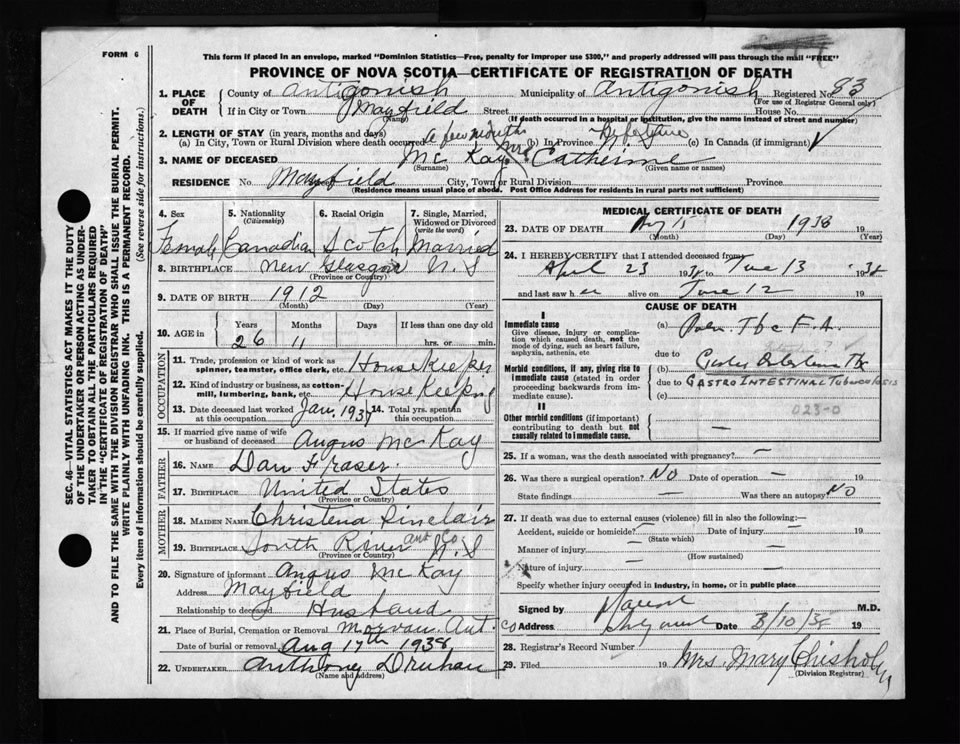 FORM 6
This form if placed in an envelope, marked "Dominion Statistics—Free, penalty for improper use $300," and properly addressed will pass through the mail "FREE"
PROVINCE OF NOVA SCOTIA—CERTIFICATE OF REGISTRATION OF DEATH
1. PLACE OF DEATH County of Antigonish Municipality of Antigonish Registered No. 83
(For use of Registrar General only)
If in City or Town Mayfield Street House No.
(Name) (If death occurred in a hospital or institution, give the name instead of street and number)
2. LENGTH OF STAY (in years, months and days)
(a) In City, Town or Rural Division where death occurred a few months (b) In Province (c) In Canada (if immigrant)
3. NAME OF DECEASED Mc Kay, Mrs Catherine
(Surname) (Given name or names)
RESIDENCE No. Mayfield City, Town or Rural Division Province
(Residence means usual place of abode. Post Office Address for residents in rural parts not sufficient)
SEC. 46—VITAL STATISTICS ACT MAKES IT THE DUTY
OF THE UNDERTAKER OR PERSON ACTING AS UNDER-
TAKER TO OBTAIN ALL THE PARTICULARS REQUIRED
IN THE "CERTIFICATE OF REGISTRATION OF DEATH"
AND TO FILE THE SAME WITH THE DIVISION REGISTRAR WHO SHALL ISSUE THE BURIAL PERMIT.
WRITE PLAINLY WITH UNFADING INK. THIS IS A PERMANENT RECORD.
Every item of information should be carefully supplied. (See reverse side for instructions.)
4. Sex 5. Nationality (Citizenship) 6. Racial Origin 7. Single, Married, Widowed or Divorced (write the word)
Female Canadian Scotch Married
8. BIRTHPLACE New Glasgow N. S
(Province or Country)
9. DATE OF BIRTH 1912
(Month) (Day) (Year)
10. AGE in Years Months Days If less than one day
26 11 hrs. or min.
OCCUPATION
11. Trade, profession or kind of work as spinner, teamster, office clerk, etc. House Keeper
12. Kind of industry or business, as cotton-mill, lumbering, bank, etc. House Keeping
13. Date deceased last worked at this occupation Jan. 1937 14. Total yrs. spent in this occupation
15. If married give name of wife or husband of deceased Angus McKay
FATHER
16. NAME Dan Fraser.
17. BIRTHPLACE United States
(Province or Country)
MOTHER
18. MAIDEN NAME Christena Sinclair
19. BIRTHPLACE South River Ant Co N. S
(Province or Country)
20. Signature of informant Angus McKay
Address Mayfield
Relationship to deceased Husband
21. Place of Burial, Cremation or Removal Morvan. Ant.
Date of burial or removal Aug 17th 1938
22. UNDERTAKER Anthony Druhan
(Name and address)
MEDICAL CERTIFICATE OF DEATH
23. DATE OF DEATH Aug 15 1938 19
(Month) (Day) (Year)
24. I HEREBY CERTIFY that I attended deceased from
April 23 1938 to June 13 1938
and last saw her alive on June 12 19
CAUSE OF DEATH
I
Immediate cause
Give disease, injury or complication which caused death, not the mode of dying, such as heart failure, asphyxia, asthenia, etc
(a) Tbc F.A.
due to
Morbid conditions, if any, giving rise to immediate cause (stated in order proceeding backwards from immediate cause).
(b)
due to GASTRO INTESTINAL TUBERCULOSIS
(c)
II
Other morbid conditions (if important) contributing to death but not causally related to immediate cause.
023-0
25. If a woman, was the death associated with pregnancy? —
26. Was there a surgical operation? No Date of operation — 19
State findings — Was there an autopsy? No
27. If death was due to external causes (violence) fill in also the following:—
Accident, suicide or homicide? — Date of injury — 19
(State which)
Manner of injury —
(How sustained)
Nature of injury —
Specify whether injury occurred in industry, in home, or in public place
Signed by M.D.
Address Date 3/10/38 19
28. Registrar's Record Number
29. Filed 19 Mrs. Mary Chisholm
(Division Registrar)